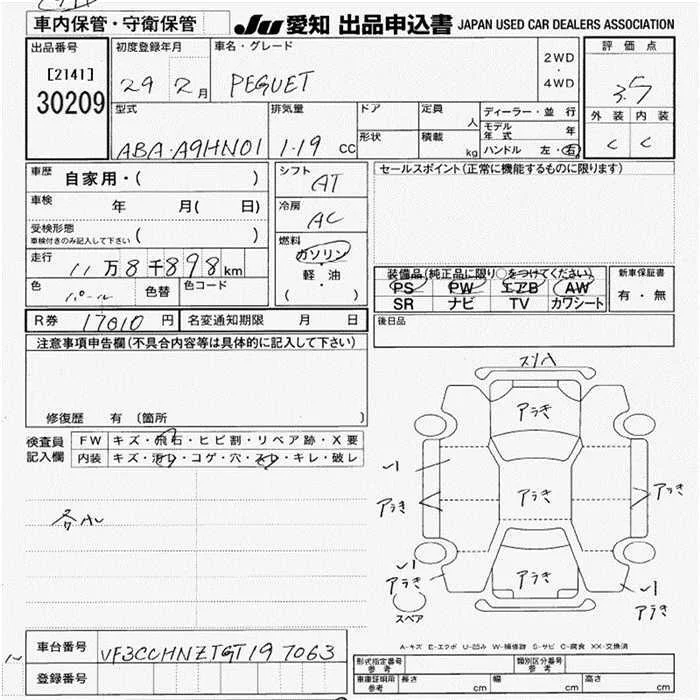 車内保管・守衛保管
JU 愛知 出品申込書 JAPAN USED CAR DEALERS ASSOCIATION
出品番号
[2141]
30209
初度登録年月
29 2月
車名・グレード
PEGUET
2WD
・
4WD
評価点
3.5
外装 内装
C C
型式
ABA・A9HN01
排気量
1.19 cc
ドア
形状
定員
人
積載
kg
ディーラー・並行
モデル年式 年
ハンドル 左・右
車歴
自家用・( )
車検
年 月( 日)
受検形態
車検付きのみ記入して下さい ( )
走行
11万8千898km
色
パール
色替
色コード
シフト
AT
冷房
AC
燃料
ガソリン
・
軽・油
( )
セールスポイント(正常に機能するものに限ります)
装備品(純正品に限り○をつけてください)
PS PW エアB AW
SR ナビ TV カワシート
新車保証書
有・無
後日品
R券 17010円
名変通知期限 月 日
注意事項申告欄(不具合内容等は具体的に記入して下さい)
修復歴 有 〔箇所 〕
検査員
記入欄
FW キズ・飛石・ヒビ割・リペア跡・X要
内装 キズ・汚レ・コゲ・穴・スレ・キレ・破レ
スリハ
アラき
アラき
アラき
アラき
アラき
アラき
アラき
スペア
A-キズ E-エクボ U-凹み W-補修跡 S-サビ C-腐食 XX-交換済
車台番号
VF3CCHNZTGT197063
登録番号
形式指定番号
参考
類別区分番号
参考
車庫証明用
参考
長さ cm
幅 cm
高さ cm